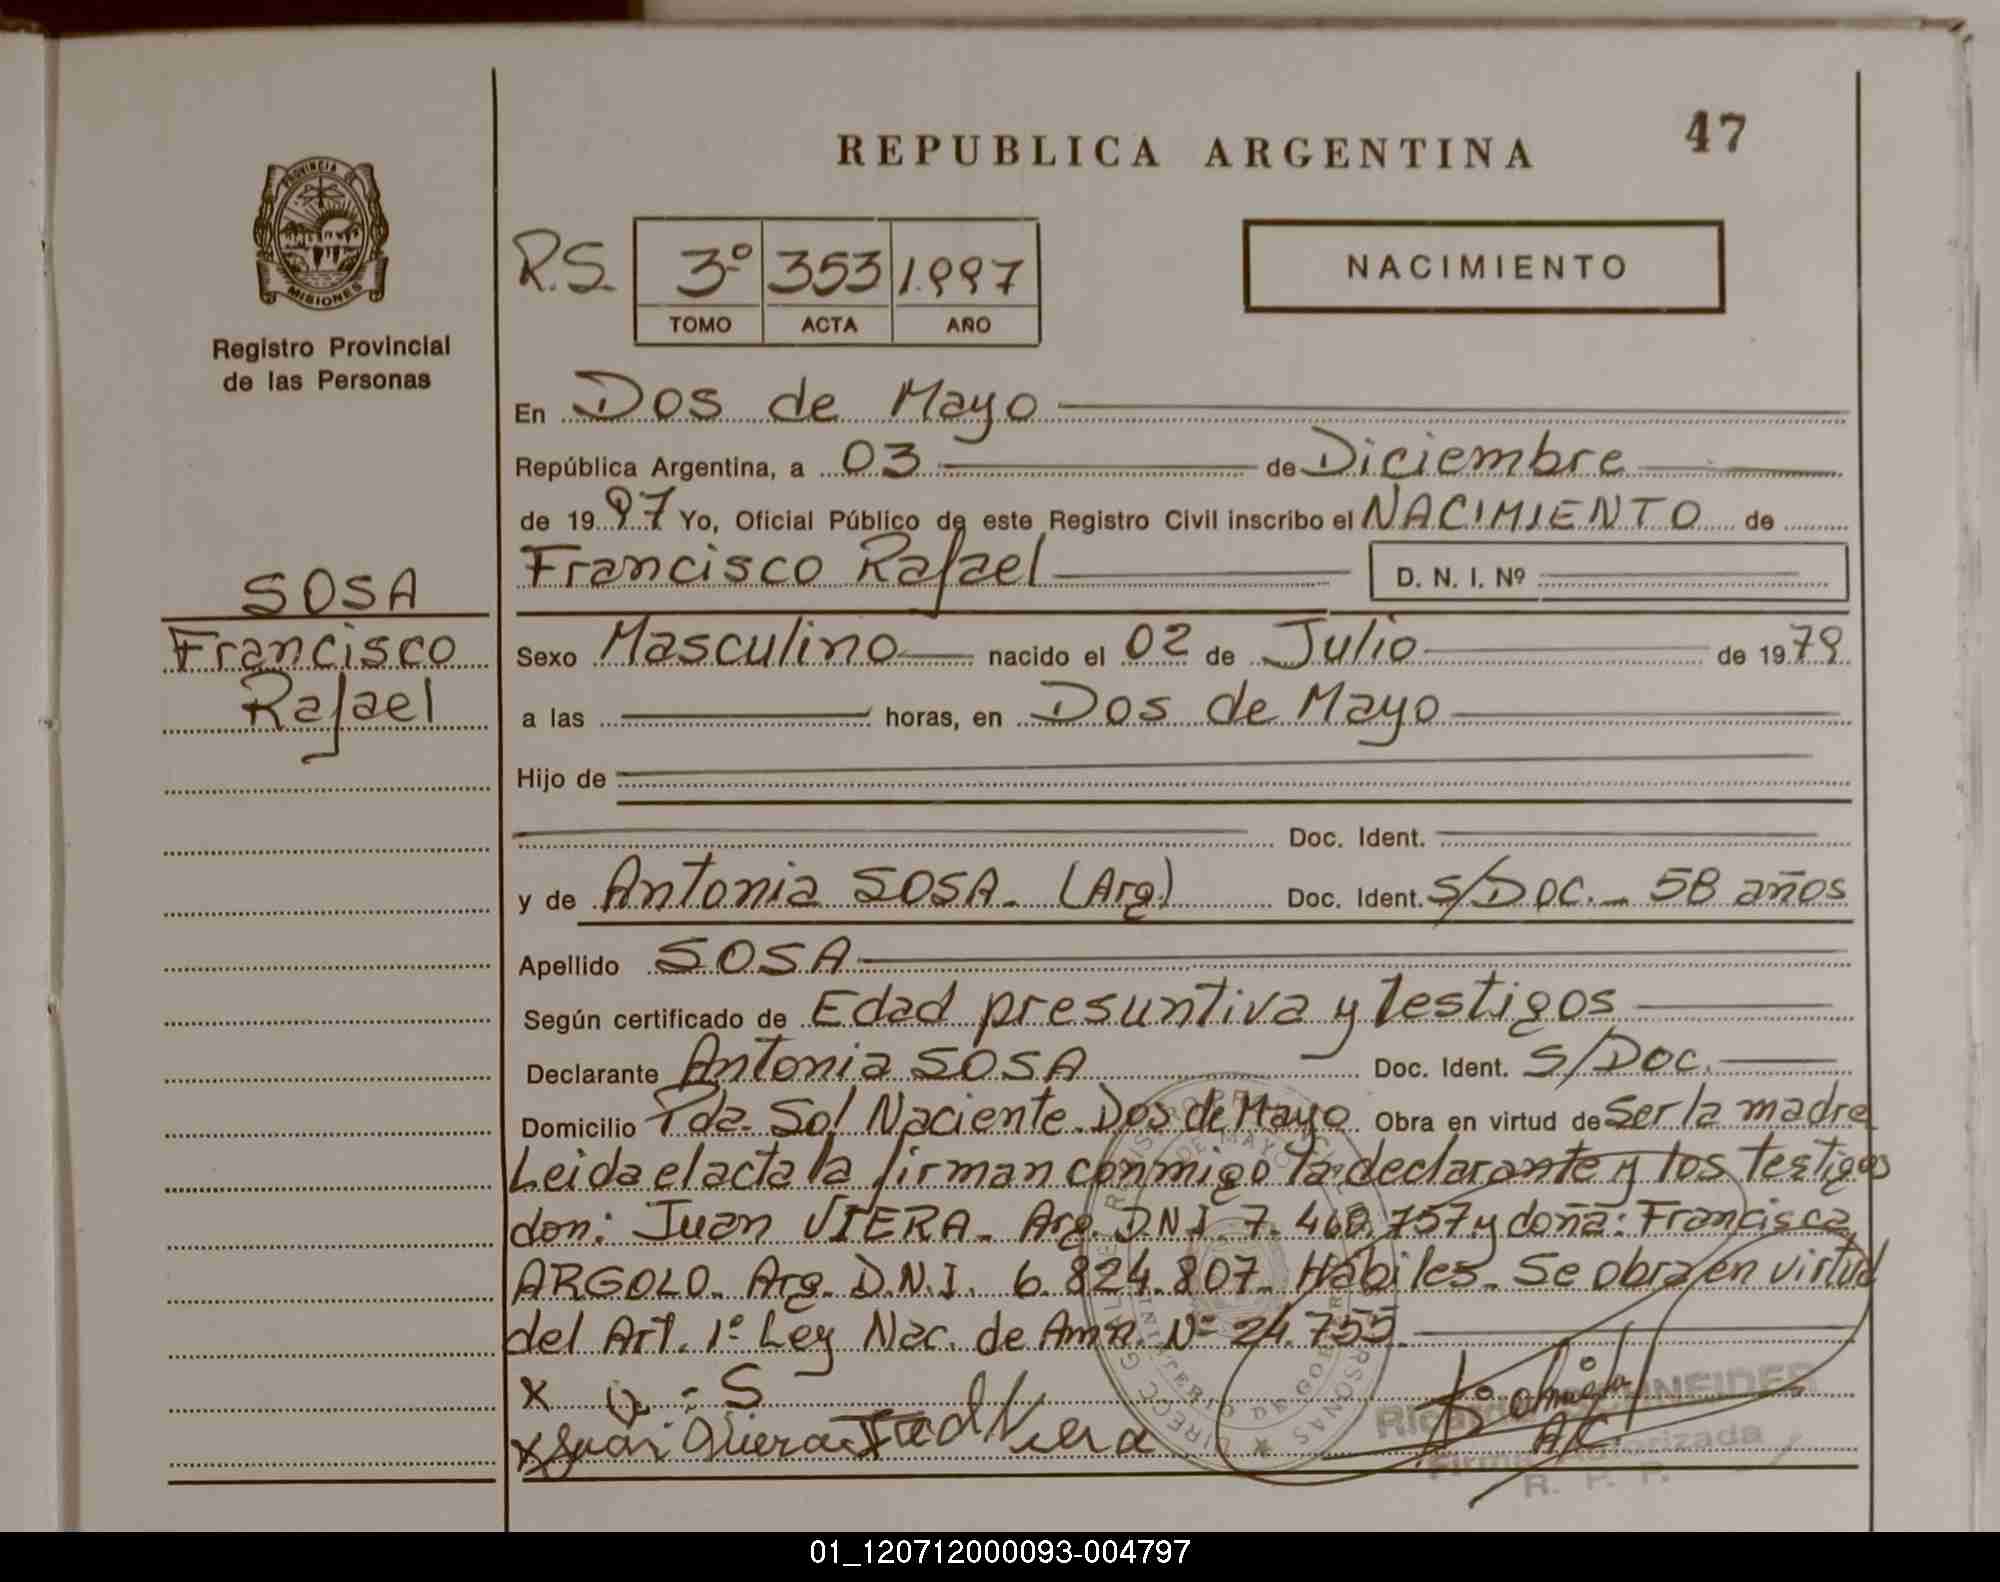 REPUBLICA ARGENTINA
47
PROVINCIA DE
MISIONES
Registro Provincial
de las Personas
R.S.
3º 353 1.997
TOMO ACTA AÑO
NACIMIENTO
En Dos de Mayo
República Argentina, a 03 de Diciembre
de 1997 Yo, Oficial Público de este Registro Civil inscribo el NACIMIENTO de
Francisco Rafael D. N. I. Nº
SOSA
Francisco
Rafael
Sexo Masculino nacido el 02 de Julio de 1979
a las horas, en Dos de Mayo
Hijo de
Doc. Ident.
y de Antonia SOSA. (Arg.) Doc. Ident. S/DOC. 58 años
Apellido SOSA
Según certificado de Edad presuntiva y testigos
Declarante Antonia SOSA Doc. Ident. S/DOC.
Domicilio Pda. Sol Naciente. Dos de Mayo Obra en virtud de Ser la madre
Leida el acta la firman conmigo la declarante y los testigos
don: Juan VIERA. Arg. D.N.I. 7.468.757 y doña: Francisca
ARGOLO. Arg. D.N.I. 6.824.807. Hábiles. Se obra en virtud
del Art. 1º Ley Nac. de Amn. Nº 24.755.
X
X Juan Viera
SCHNEIDER
Firma Autorizada
R. P. P.
01_120712000093-004797